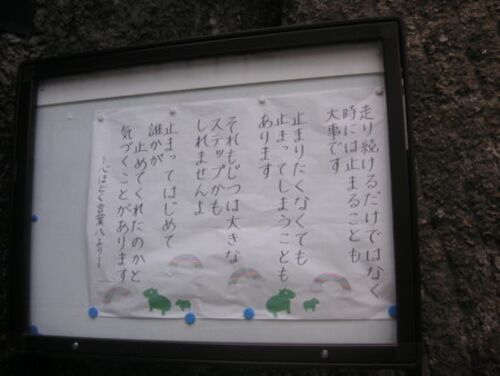 走り続けるだけではなく
時には止まることも
大事です
止まりたくなくても
止まってしまうことも
あります
それもじつは大きな
ステップかも
しれませんよ
止まってはじめて
誰かが
止めてくれたのかと
気づくことがあります
〜心ほどく言葉八より〜